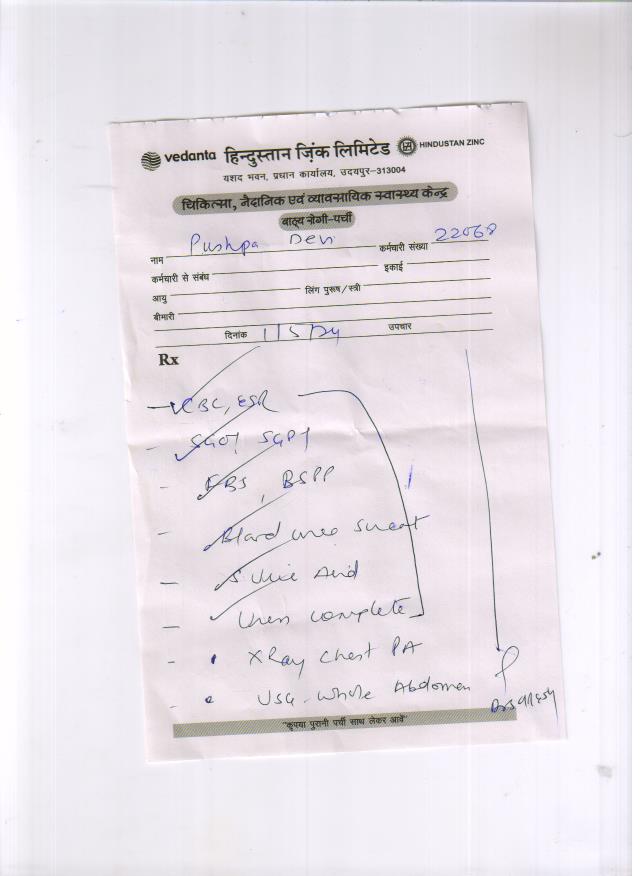 vedanta हिन्दुस्तान ज़िंक लिमिटेड HINDUSTAN ZINC
यशद भवन, प्रधान कार्यालय, उदयपुर-313004
चिकित्सा, नैदानिक एवं व्यावसायिक स्वास्थ्य केन्द्र
बाह्य रोगी-पर्ची
नाम Pushpa Devi कर्मचारी संख्या 22068
कर्मचारी से संबंध इकाई
आयु लिंग पुरूष/स्त्री
बीमारी
दिनांक उपचार
Rx
- CBC, ESR
- SGOT, SGPT
- FBS, BSPP
- Blood urea
- S. Uric Acid
- Urine complete
- XRay Chest PA
- USG - Whole Abdomen
"कृपया पुरानी पर्ची साथ लेकर आवें"